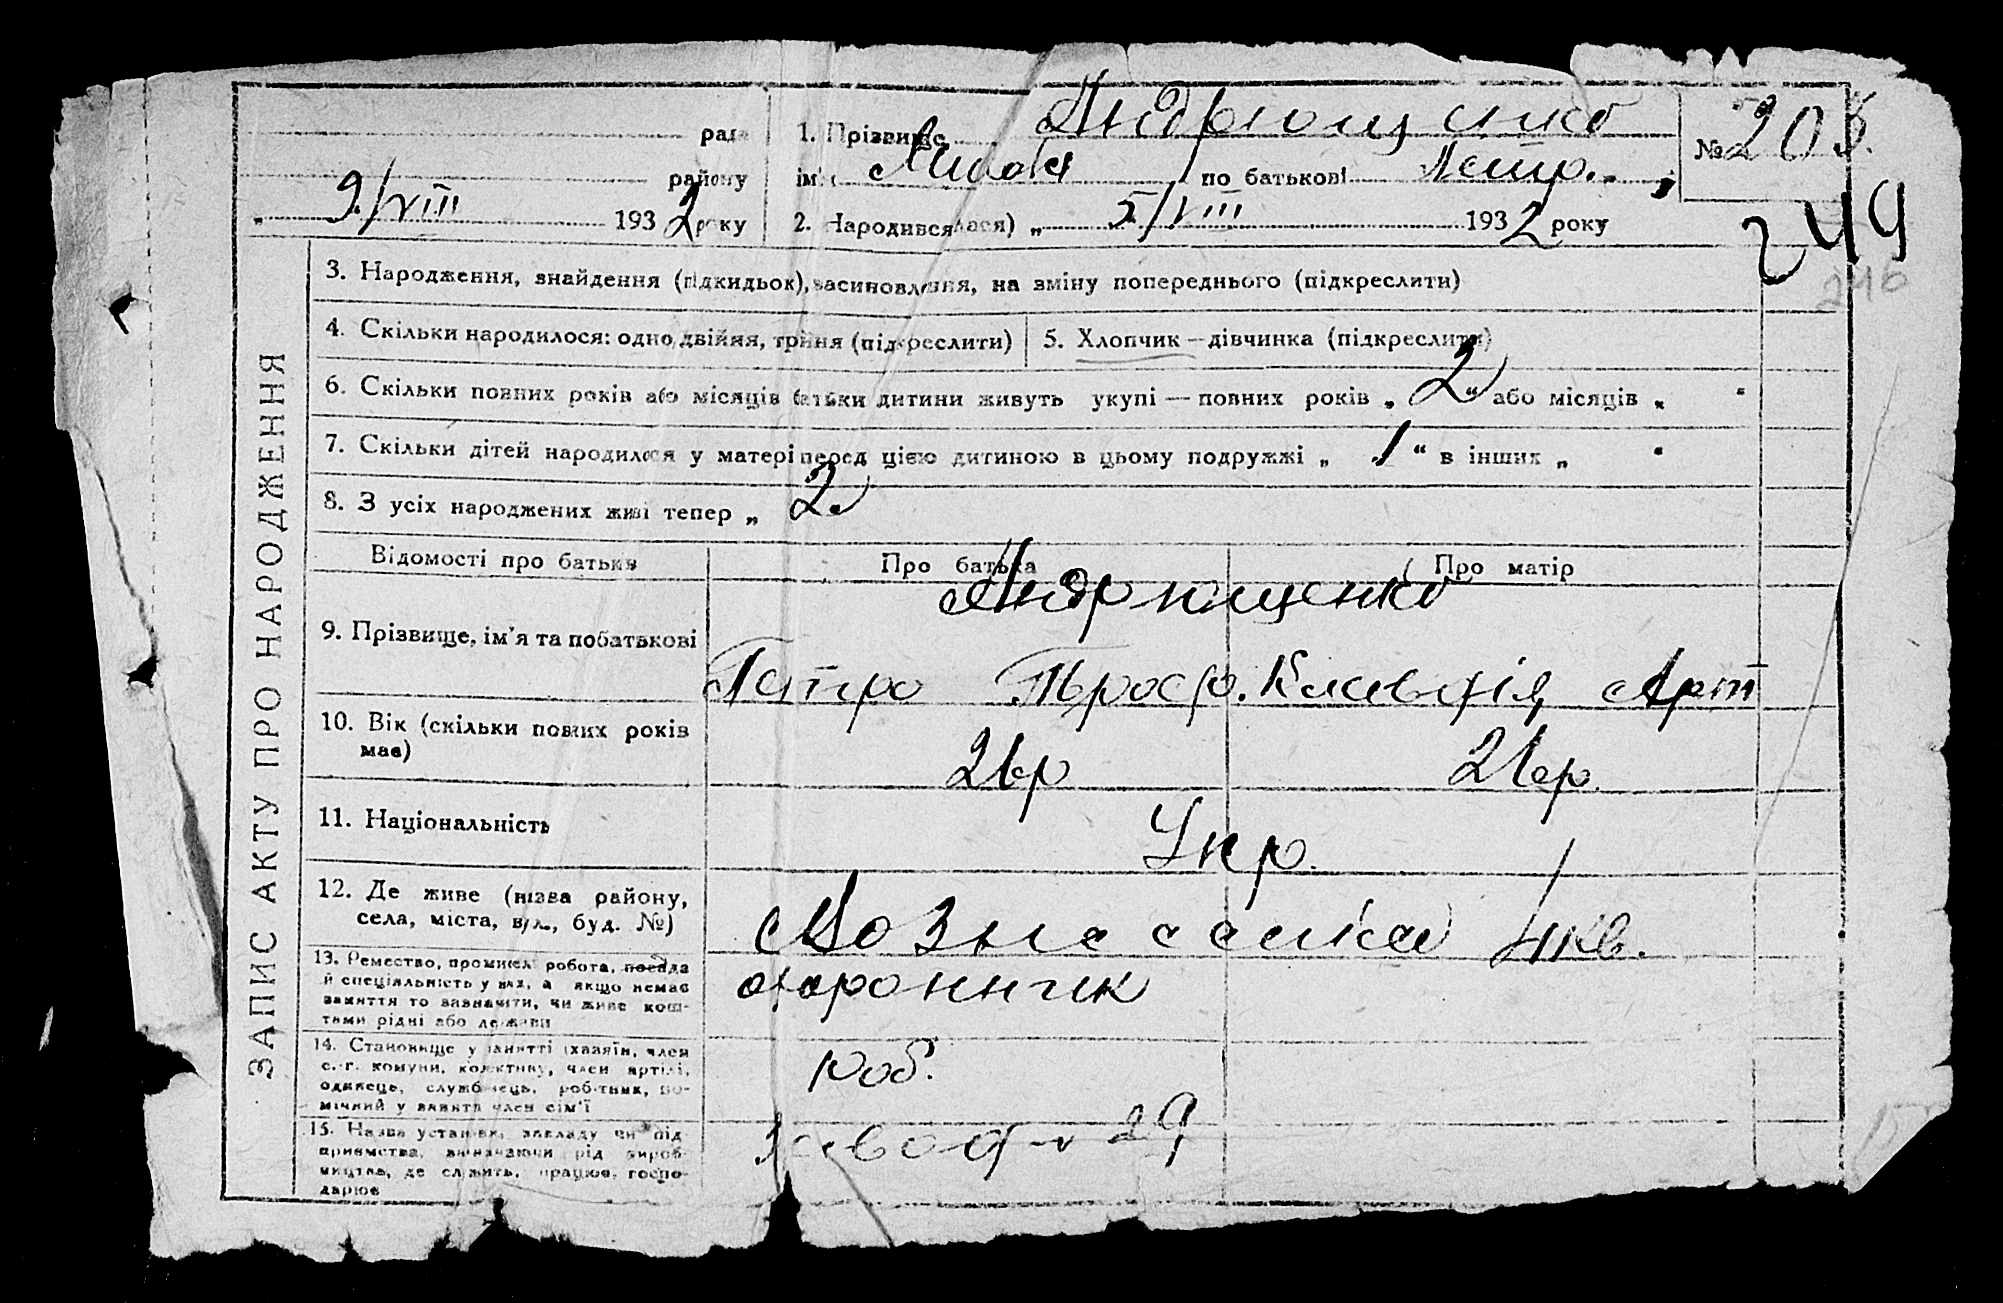 рада
району
9/VIII 1932 року
1. Прізвище Андрющенко
ім'я по батькові Петр.
2. Народився(лася) „ 5/VIII 1932 року
№ 208.
249
246
ЗАПИС АКТУ ПРО НАРОДЖЕННЯ
3. Народження, знайдення (підкидьок), засиновлення, на зміну попереднього (підкреслити)
4. Скільки народилося: одно, двійня, трійня (підкреслити)
5. Хлопчик — дівчинка (підкреслити)
6. Скільки повних років або місяців батьки дитини живуть укупі — повних років „ 2 “ або місяців „ “
7. Скільки дітей народилося у матері перед цією дитиною в цьому подружжі „ 1 “ в інших „ “
8. З усіх народжених живі тепер „ 2
Відомості про батьків
Про батька
Про матір
9. Прізвище, ім'я та побатькові
Андрющенко
Петро Троф. Клавдія Арт
10. Вік (скільки повних років
має)
21 р. 21 р.
11. Національність
Укр.
12. Де живе (назва району,
села, міста, вул., буд. №)
Вознесенка кв.
13. Ремество, промисел робота, посада
й спеціяльність у них, а якщо немає
заняття то зазначити, чи живе кош-
тами рідні або держави
охоронник
14. Становище у занятті (хазяїн, член
с.-г. комуни, колективу, член артілі,
одинець, службовець, робітник, по-
мічний у занятті член сім'ї
роб.
15. Назва установи, закладу чи під-
приємства, зазначаючи рід вироб-
ництва, де служить, працює, госпо-
дарює
Завод № 29
15